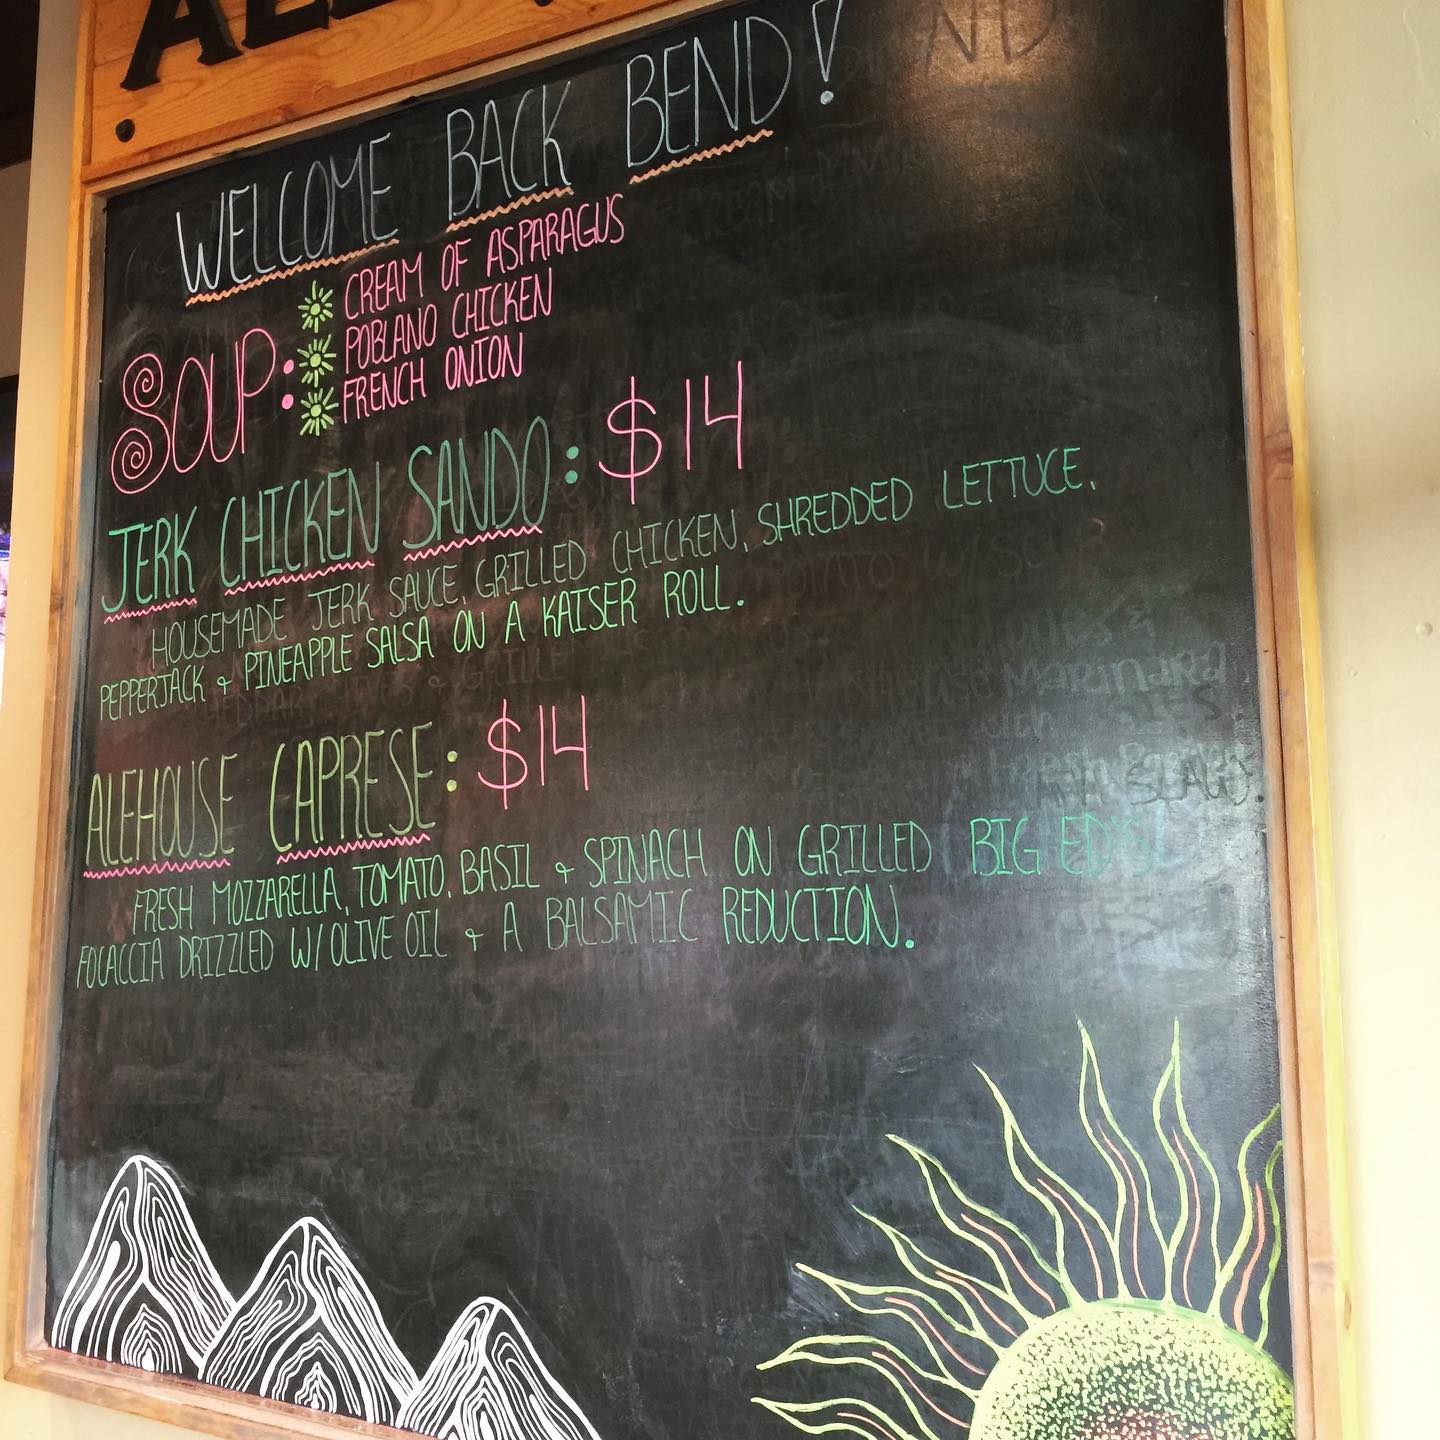 WELCOME BACK BEND!
SOUP:
CREAM OF ASPARAGUS
POBLANO CHICKEN
FRENCH ONION
JERK CHICKEN SANDO: $14
HOUSEMADE JERK SAUCE, GRILLED CHICKEN, SHREDDED LETTUCE,
PEPPERJACK & PINEAPPLE SALSA ON A KAISER ROLL.
ALEHOUSE CAPRESE: $14
FRESH MOZZARELLA, TOMATO, BASIL & SPINACH ON GRILLED BIG ED'S
FOCACCIA DRIZZLED W/ OLIVE OIL & A BALSAMIC REDUCTION.